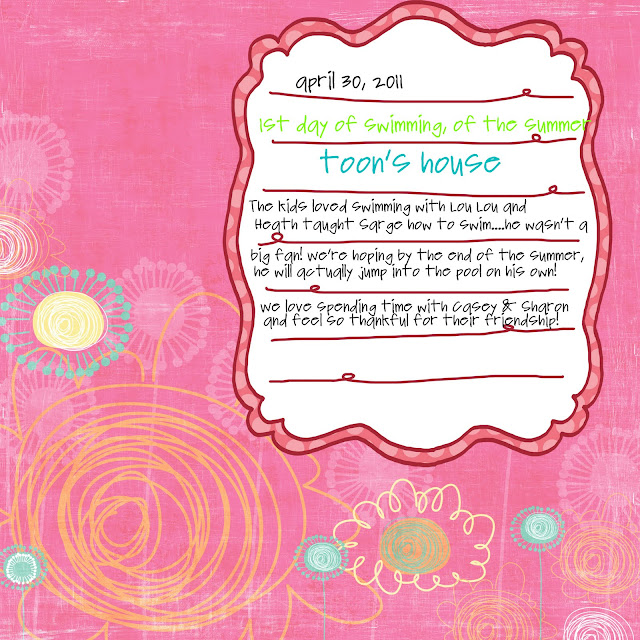 april 30, 2011
1st day of swimming, of the summer
Toon's house
The kids loved swimming with Lou Lou and
Heath taught Sarge how to swim....he wasn't a
big fan! we're hoping by the end of the summer,
he will actually jump into the pool on his own!
we love spending time with Casey & Sharon
and feel so thankful for their friendship!